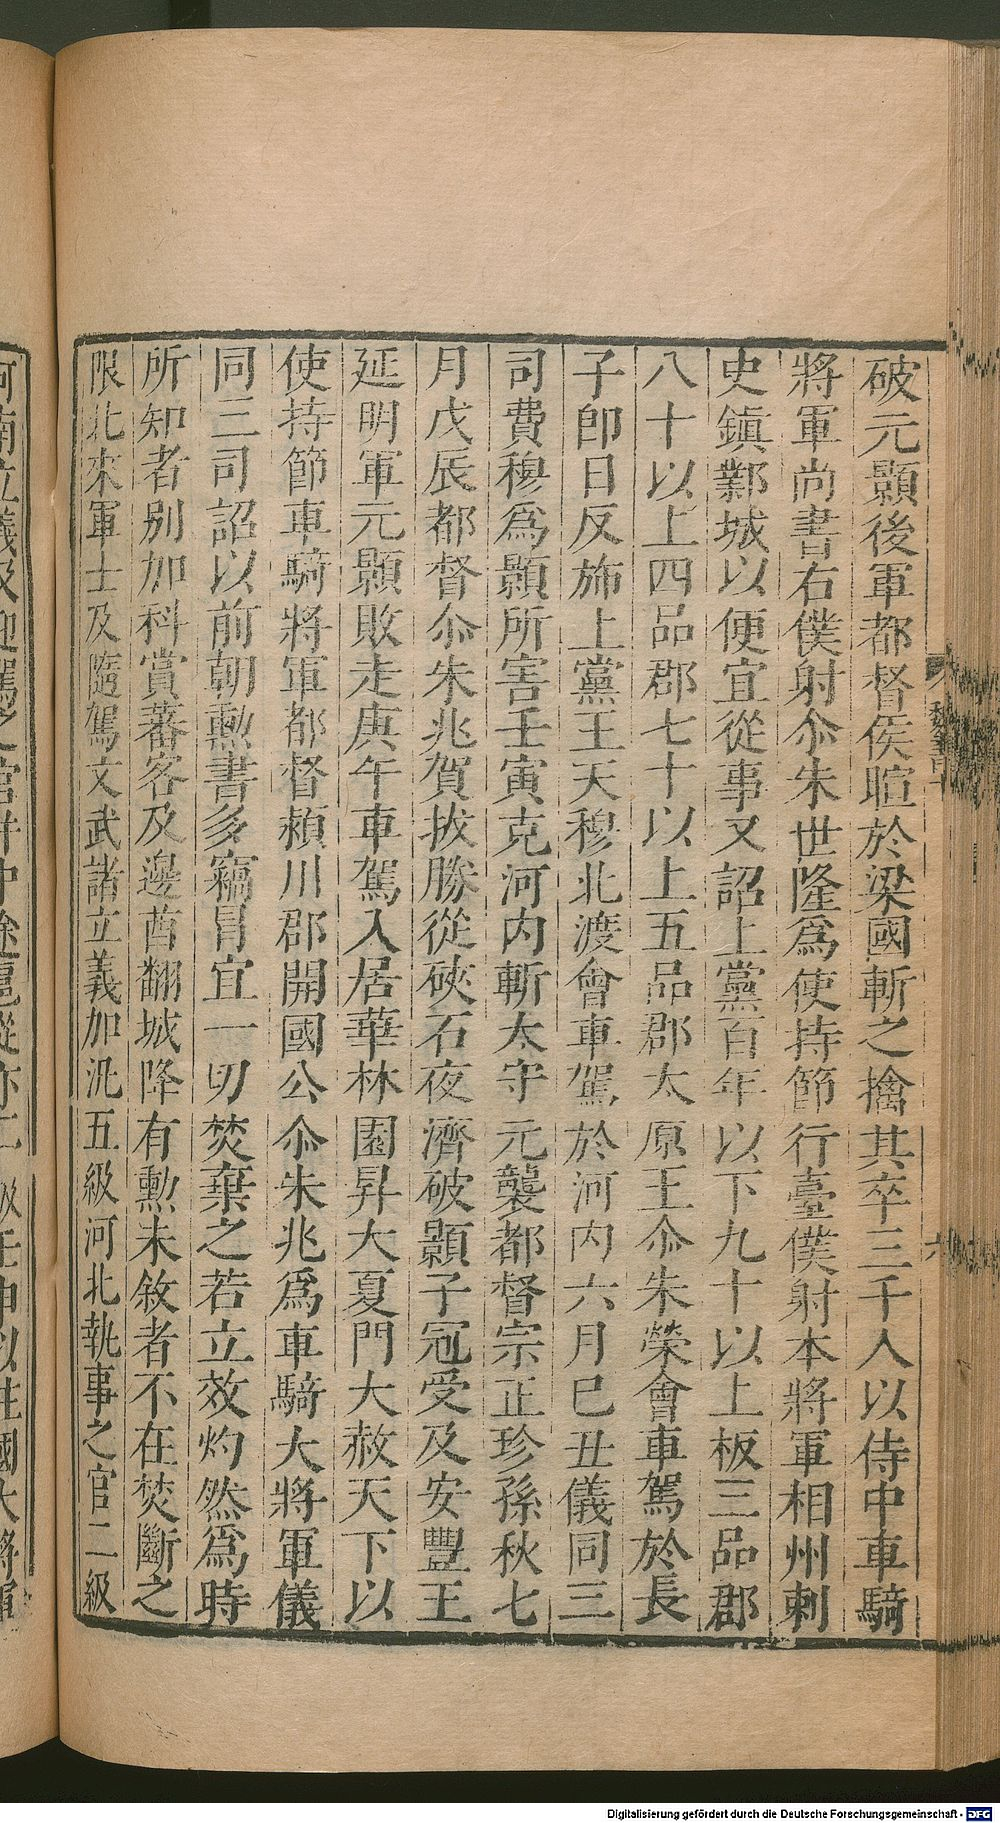 破元顥後軍都督侯暄於梁國斬之擒其卒三千人以侍中車騎
將軍尚書右僕射尒朱世隆爲使持節行臺僕射本將軍相州刺
史鎮鄴城以便宜從事又詔上黨百年以下九十以上板三品郡
八十以上四品郡七十以上五品郡太原王尒朱榮會車駕於長
子卽日反斾上黨王天穆北渡會車駕於河内六月己丑儀同三
司費穆爲顥所害壬寅克河内斬太守元襲都督宗正珍孫秋七
月戊辰都督尒朱兆賀拔勝從硤石夜濟破顥子冠受及安豐王
延明軍元顥敗走庚午車駕入居華林園昇大夏門大赦天下以
使持節車騎將軍都督潁川郡開國公尒朱兆爲車騎大將軍儀
同三司詔以前朝勲書多竊冒宜一切焚棄之若立效灼然爲時
所知者别加科賞蕃客及邊酋翻城降有勲未敘者不在焚斷之
限北來軍士及隨駕文武諸立義加汎五級河北執事之官二級
河南立義及迎駕之官并中途扈從亦二級壬申以柱國大將軍
六
Digitalisierung gefördert durch die Deutsche Forschungsgemeinschaft - DFG